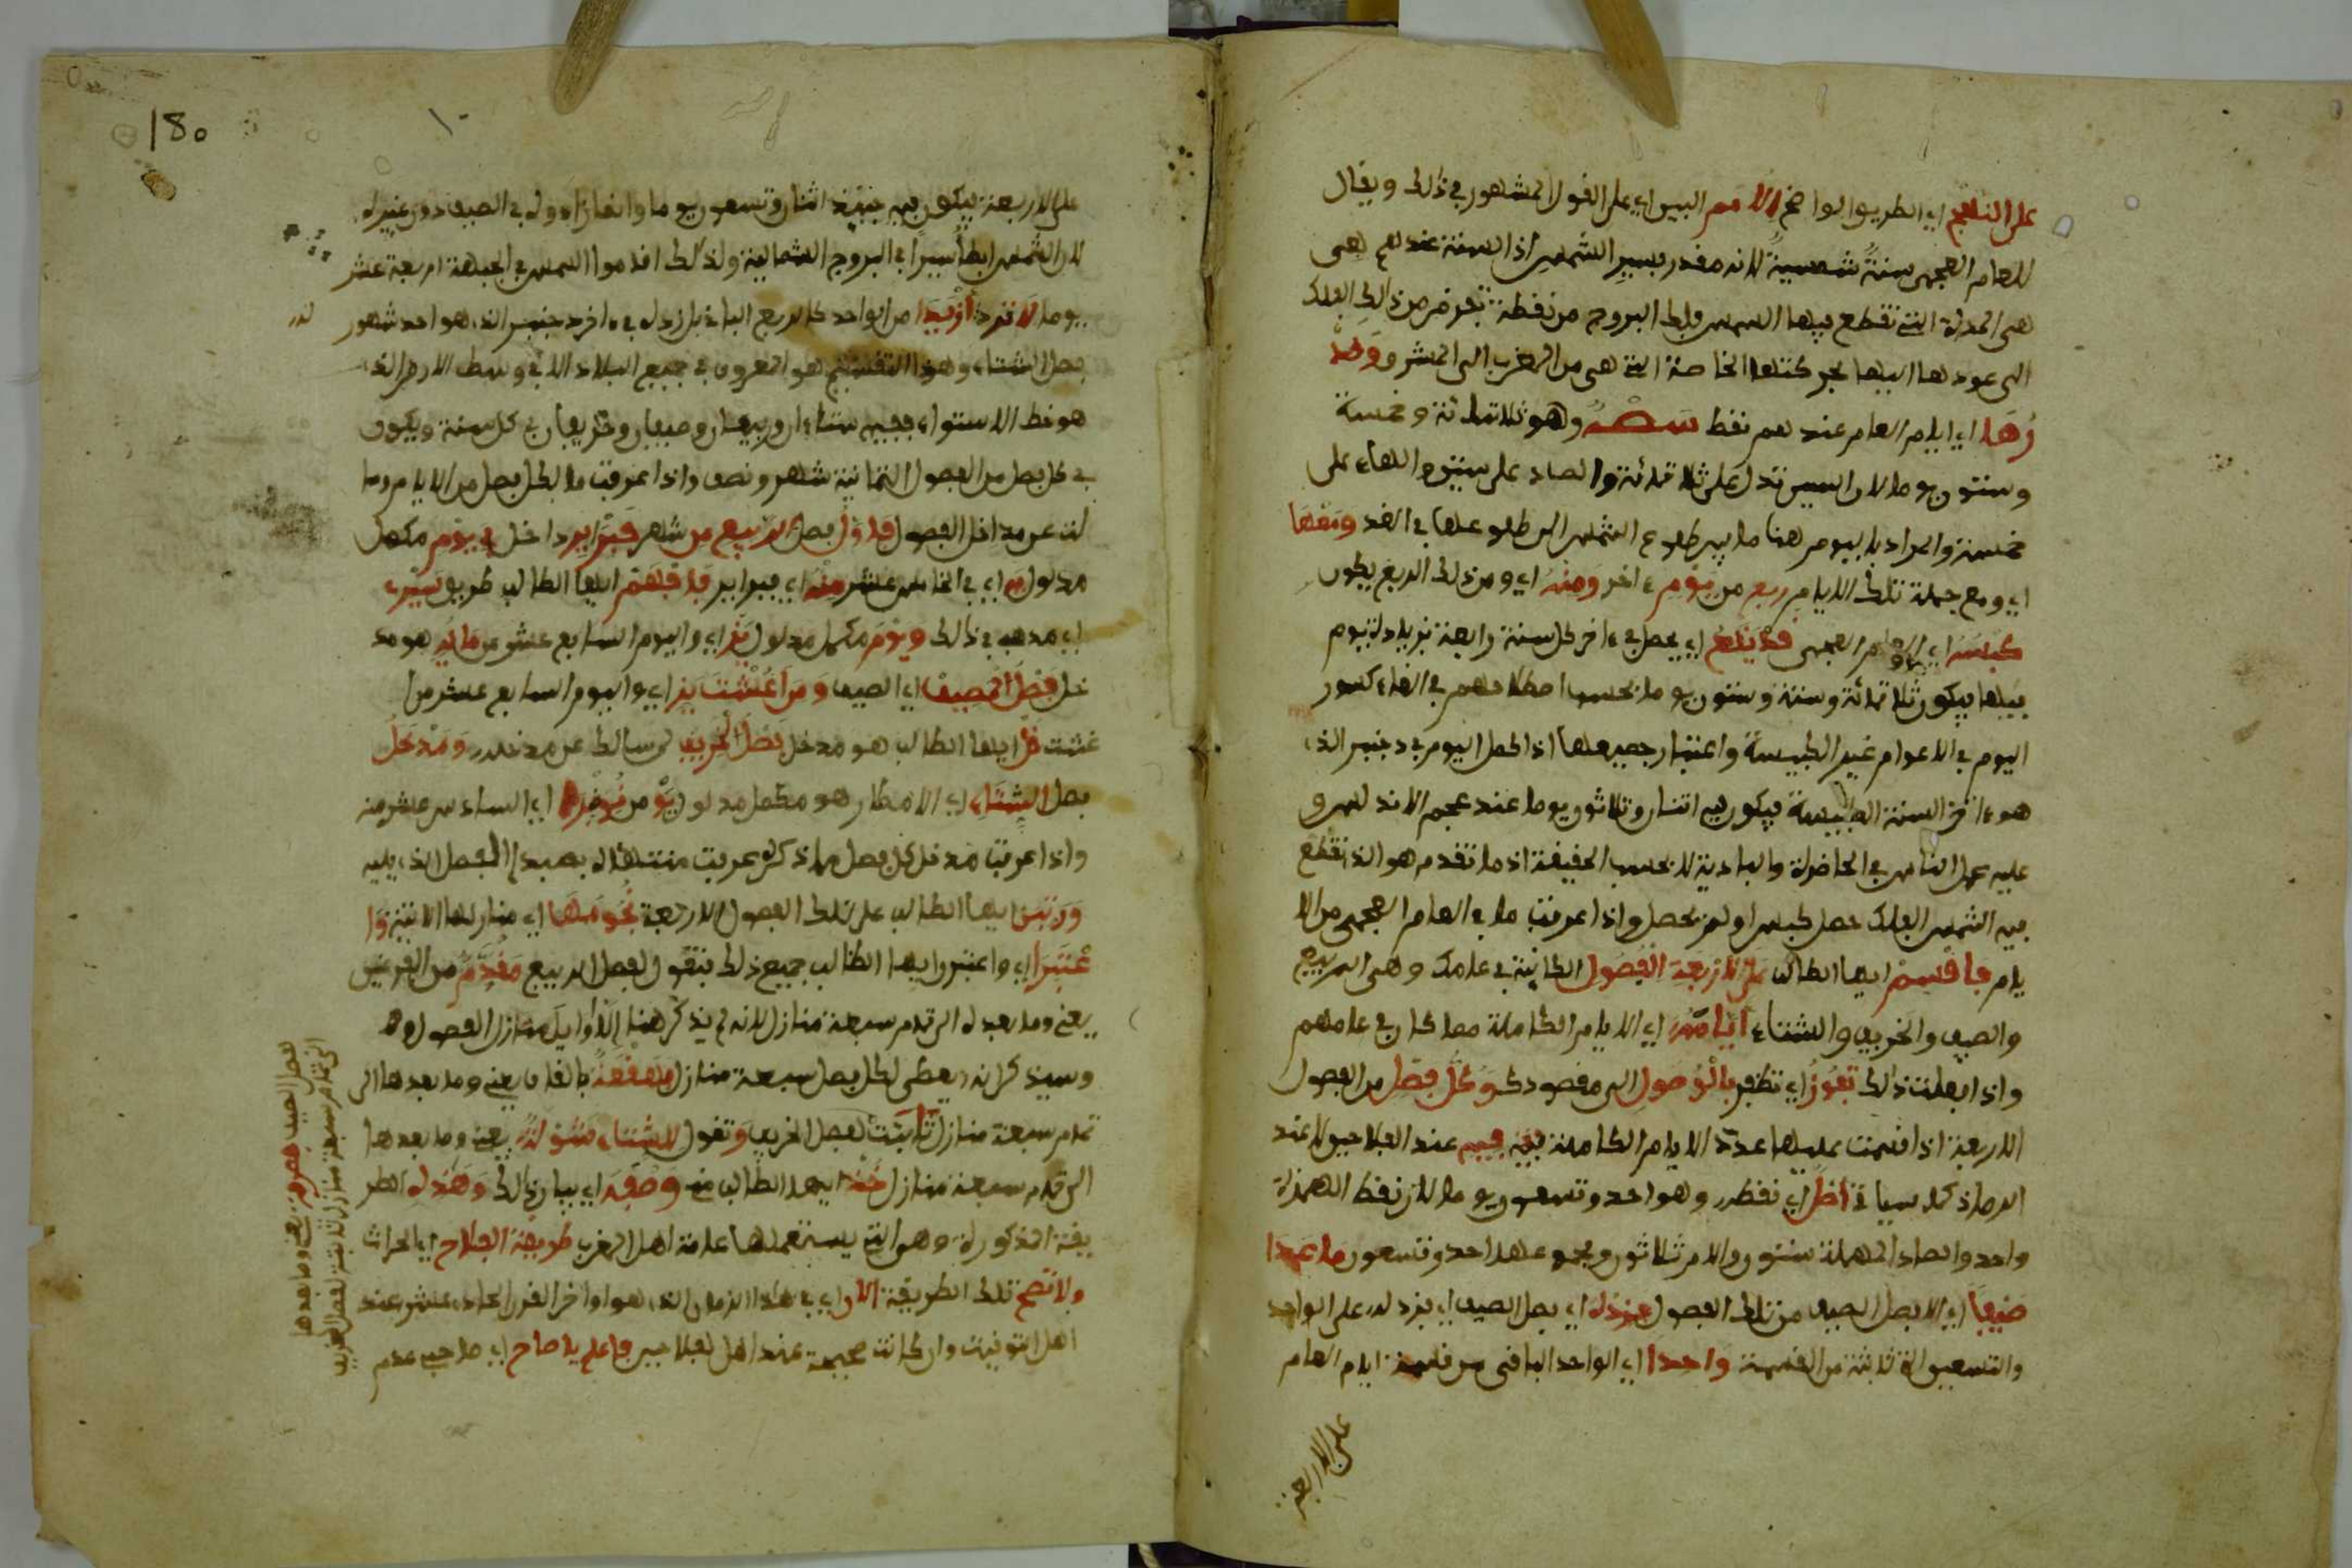 على النهج اي الطريق الواضح الامم البين اي على القول المشهور في ذالك ويقال
للعام العجمي سنة شمسية لانه مقدر بسير الشمس اذ السنة عندهم هى
هى المدة التي تقطع فيها الشمس فلك البروج من نقطة تعرض من ذالك الفلك
الى عودها اليها بحركتها الخاصة التي هى من المغرب الى المشرق وخذ
اي ايام العام عندهم نقط شسه وهو ثلاثمائة وخمسة
وستون يوما لان السين تدل على ثلاثمائة والصاد على ستين والهاء على
خمسة والمراد باليوم هنا ما بين طلوع الشمس الى طلوعها في الغد ومعها
اي ومع جملة تلك الايام ربع من يوم ءاخر ومنه اي ومن ذلك الربع يكون
كبسه اي العام العجمي قد يقع اي يحصل في ءاخر كل سنة رابعة بزيادة يوم
فيها فيكون ثلاثمائة وستة وستون يوما بحسب اصطلاحهم في الغاء كسور
اليوم في الاعوام غير الكبيسة واعتبار جميعها اذا كمل اليوم في دجنبر الذي
هو ءاخر السنة الكبيسة فيكون فيه اثنان وثلاثون يوما عند عجم الاندلس و
عليه عمل الناس في الحاضرة والبادية لا بحسب الحقيقة اذ ما تقدم هو الذي تقطع
فيه الشمس الفلك حصل كبس او لم يحصل واذا عرفت ما في العام العجمي من الا
يام فاقسم ايها الطالب على الاربعة الفصول الكائنة في عامك وهي الربيع
والصيف والخريف والشتاء ايامه اي الايام الكاملة مما كان في عامهم
واذا فعلت ذالك تفوز اي تظفر بالوصول الى مقصودك وكل فصل من الفصول
الاربعة اذا قسمت عليها عدد الايام الكاملة فيه عند الفلاحين لا عند
الرصاد كما سياتي اصل اي نقطه وهو احد وتسعون يوما لان نقط الهمزة
واحد والصاد المهملة ستون واللام ثلاثون ومجموعها احد وتسعون ما عدا
صيفا اي الا فصل الصيف من تلك الفصول فزده اي فصل الصيف اي فزد له على الواحد
والتسعين الثابتة من القسمة واحدا اي الواحد الباقى من قسمة ايام العام
على الاربعة
180
على الاربعة فيكون فيه حينئذ اثنان وتسعون يوما وانما زادوه في الصيف دون غيره
لان الشمس ابطأ سيرا في البروج الشمالية ولذلك اقاموا الشمس في الجبهة اربعة عشر
يوما لا تزد ازيدا من الواحد كالربع الباقي بل زده في ءاخر دجنبر الذي هو احد شهور
فصل الشتاء وهذا التقسيم هو المعروف في جميع البلاد الا في وسط الارض الذي
هو خط الاستواء ففيه شتاءان وربيعان وصيفان وخريفان في كل سنة ويكون
في كل فصل من الفصول الثمانية شهر ونصف واذا عرفت ما لكل فصل من الايام وسا
لت عن مداخل الفصول فاول فصل الربيع من شهر فبراير داخل في يوم مكمل
مدلول يه اي في الخامس عشر منه اي فبراير فافهم ايها الطالب طريق سيره
اي مذهبه في ذالك ويوم مكمل مدلول يز اي واليوم السابع عشر من مايه هو مد
خل فصل المصيف اي الصيف ومن اغشت يز اي واليوم السابع عشر من
غشت قل ايها الطالب هو مدخل فصل الخريف لمن سالك عن مدخله ومدخل
فصل الشتاء اي الامطار هو مكمل مدلول يو من نونبر اي السادس عشر منه
واذا عرفت مدخل كل فصل مما ذكر عرفت منتهاه بمبدإ الفصل الذي يليه
ورتبن ايها الطالب على تلك الفصول الاربعة نجومها اي منازلها الاتية وا
عتبرا اي واعتبر ايها الطالب جميع ذلك فتقول لفصل الربيع مقدم من الفرغين
يعنى وما بعده الى تمام سبعة منازل لانه لم يذكر هنا الا اوايل منازل الفصول
وسيذكر انه يعطى لكل فصل سبعة منازل هقعة بالقاف يعنى وما بعدها الى
تمام سبعة منازل ثابتة لفصل الخريف وتقول للشتاء شولة يعنى وما بعدها
الى تمام سبعة منازل خذ ايها الطالب مني وصفه اي بيان ذالك وهذه الطر
يقة المذكورة وهو التي يستعملها عامة اهل المغرب طريقة الفلاح اي الحراث
ولا تصح تلك الطريقة الان اي في هذا الزمان الذي هو اواخر القرن الحادي عشر عند
اهل التوقيت وان كانت صحيحة عند اهل الفلاحين فاعلم يا صاح اي صاحب عدم
لفصل الصيف هصرفة يعنى وما بعدها
الى تمام سبعة منازل ثابتة لفصل الخريف